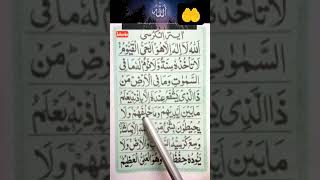 الله
آیۃ الکرسی
اَللّٰهُ لَآ اِلٰهَ اِلَّا هُوَ اَلْحَیُّ الْقَیُّوْمُ
لَا تَاْخُذُهٗ سِنَةٌ وَّلَا نَوْمٌ لَهٗ مَا فِی
السَّمٰوٰتِ وَمَا فِی الْاَرْضِ مَنْ
ذَا الَّذِیْ یَشْفَعُ عِنْدَهٗ اِلَّا بِاِذْنِهٖ یَعْلَمُ
مَا بَیْنَ اَیْدِیْهِمْ وَمَا خَلْفَهُمْ وَلَا
یُحِیْطُوْنَ بِشَیْءٍ مِّنْ
وَسِعَ كُرْسِیُّهُ السَّمٰوٰتِ وَالْاَرْضَ وَلَا
یَئُوْدُهٗ حِفْظُهُمَا وَهُوَ الْعَلِیُّ الْعَظِیْمُ